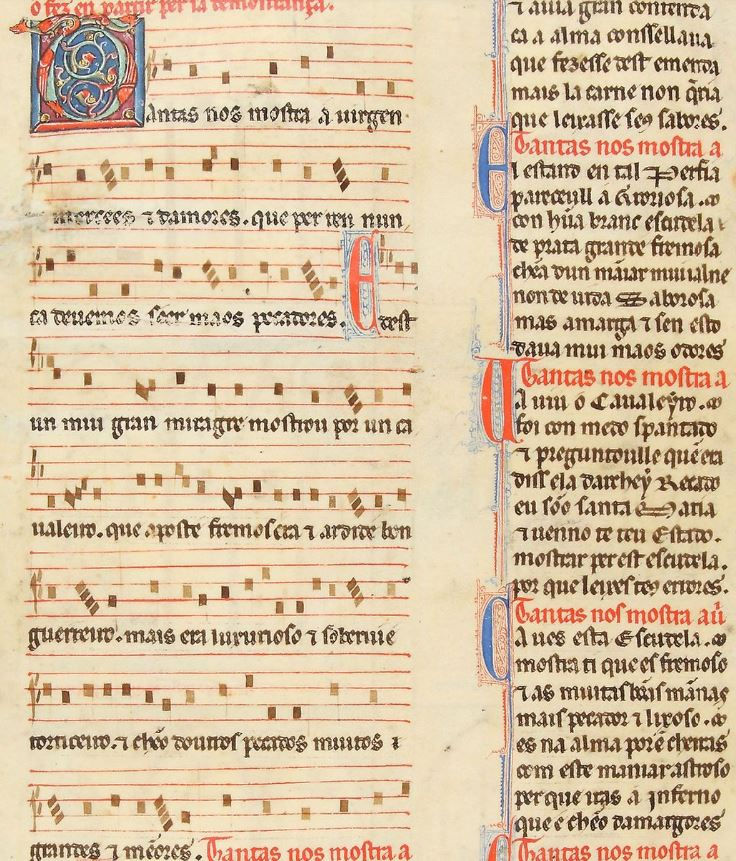 o fez en partir per sa demostrança.
Tantas nos mostra a uirgen
mercees ⁊ damores. que per ren nun
ca deuemos seer maos pecadores. E dest
un mui gran miragre mostrou por un ca
ualeiro. que aposte fremos era ⁊ ardide bon
guerreiro. mais era luxurioso ⁊ soberuie
torticeiro. ⁊ chẽo doutros pecados muitos ⁊
grandes ⁊ mẽores. Tantas nos mostra a
⁊ auia gran contenda
ca a alma consellaua
que fezesse dest emenda
mais la carne non q̄ria
que leixasse seus sabores.
Tantas nos mostra a
El estand en tal Perfia
pareceull a Groriosa.
con hũa branc escudela
de prata grande fremosa
chẽa dun mãiar mui alne
non de uida Saborosa
mas amarga ⁊ sen esto
daua mui maos odores
Tantas nos mostra a
A uiu o Caualeyro.
foi con medo spantado
⁊ preguntoulle quẽ era
diss ela darchey Recado
eu sõo santa Maria
⁊ uenno te teu Estado.
mostrar per est escudela.
por que leixes teus errores.
Tantas nos mostra a ũ
Ca ues esta Escudela.
mostra ti que es fremoso
⁊ as muitas bõas mãnas
mais pecador ⁊ lixoso.
es na alma porẽ cheiras
com este maniar astroso
per que iras a inferno
que e chẽo damargores
Tantas nos mostra a